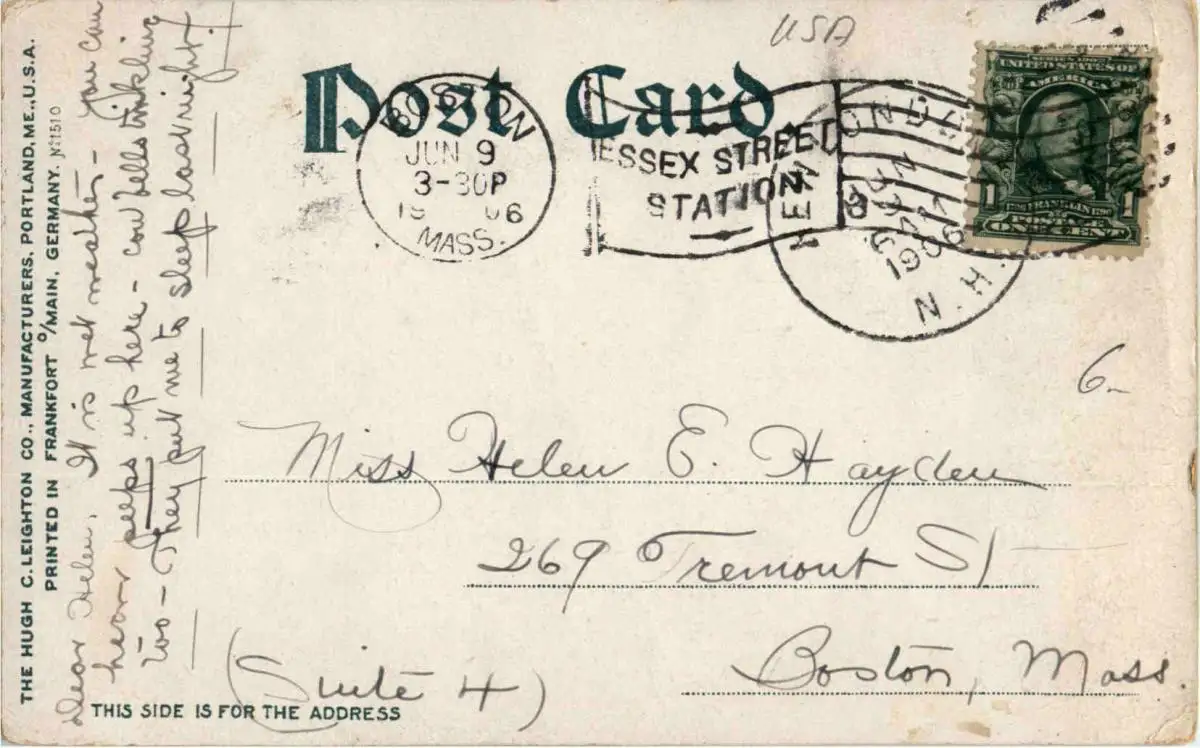 USA
Post Card
BOSTON
JUN 9
3-30P
19 06
MASS.
ESSEX STREET
STATION
N. H.
UNITED STATES OF
AMERICA
1 1
FRANKLIN
POSTAGE
ONE CENT
6-
Miss Helen E. Hayden
269 Tremont St
Boston, Mass.
(Suite 4)
THIS SIDE IS FOR THE ADDRESS
Dear Helen, It is wet weather - you can
hear peeps up here - cow bells tinkling
too - They put me to sleep last night.
THE HUGH C. LEIGHTON CO., MANUFACTURERS, PORTLAND, ME., U.S.A.
PRINTED IN FRANKFORT O/MAIN, GERMANY. No 1510